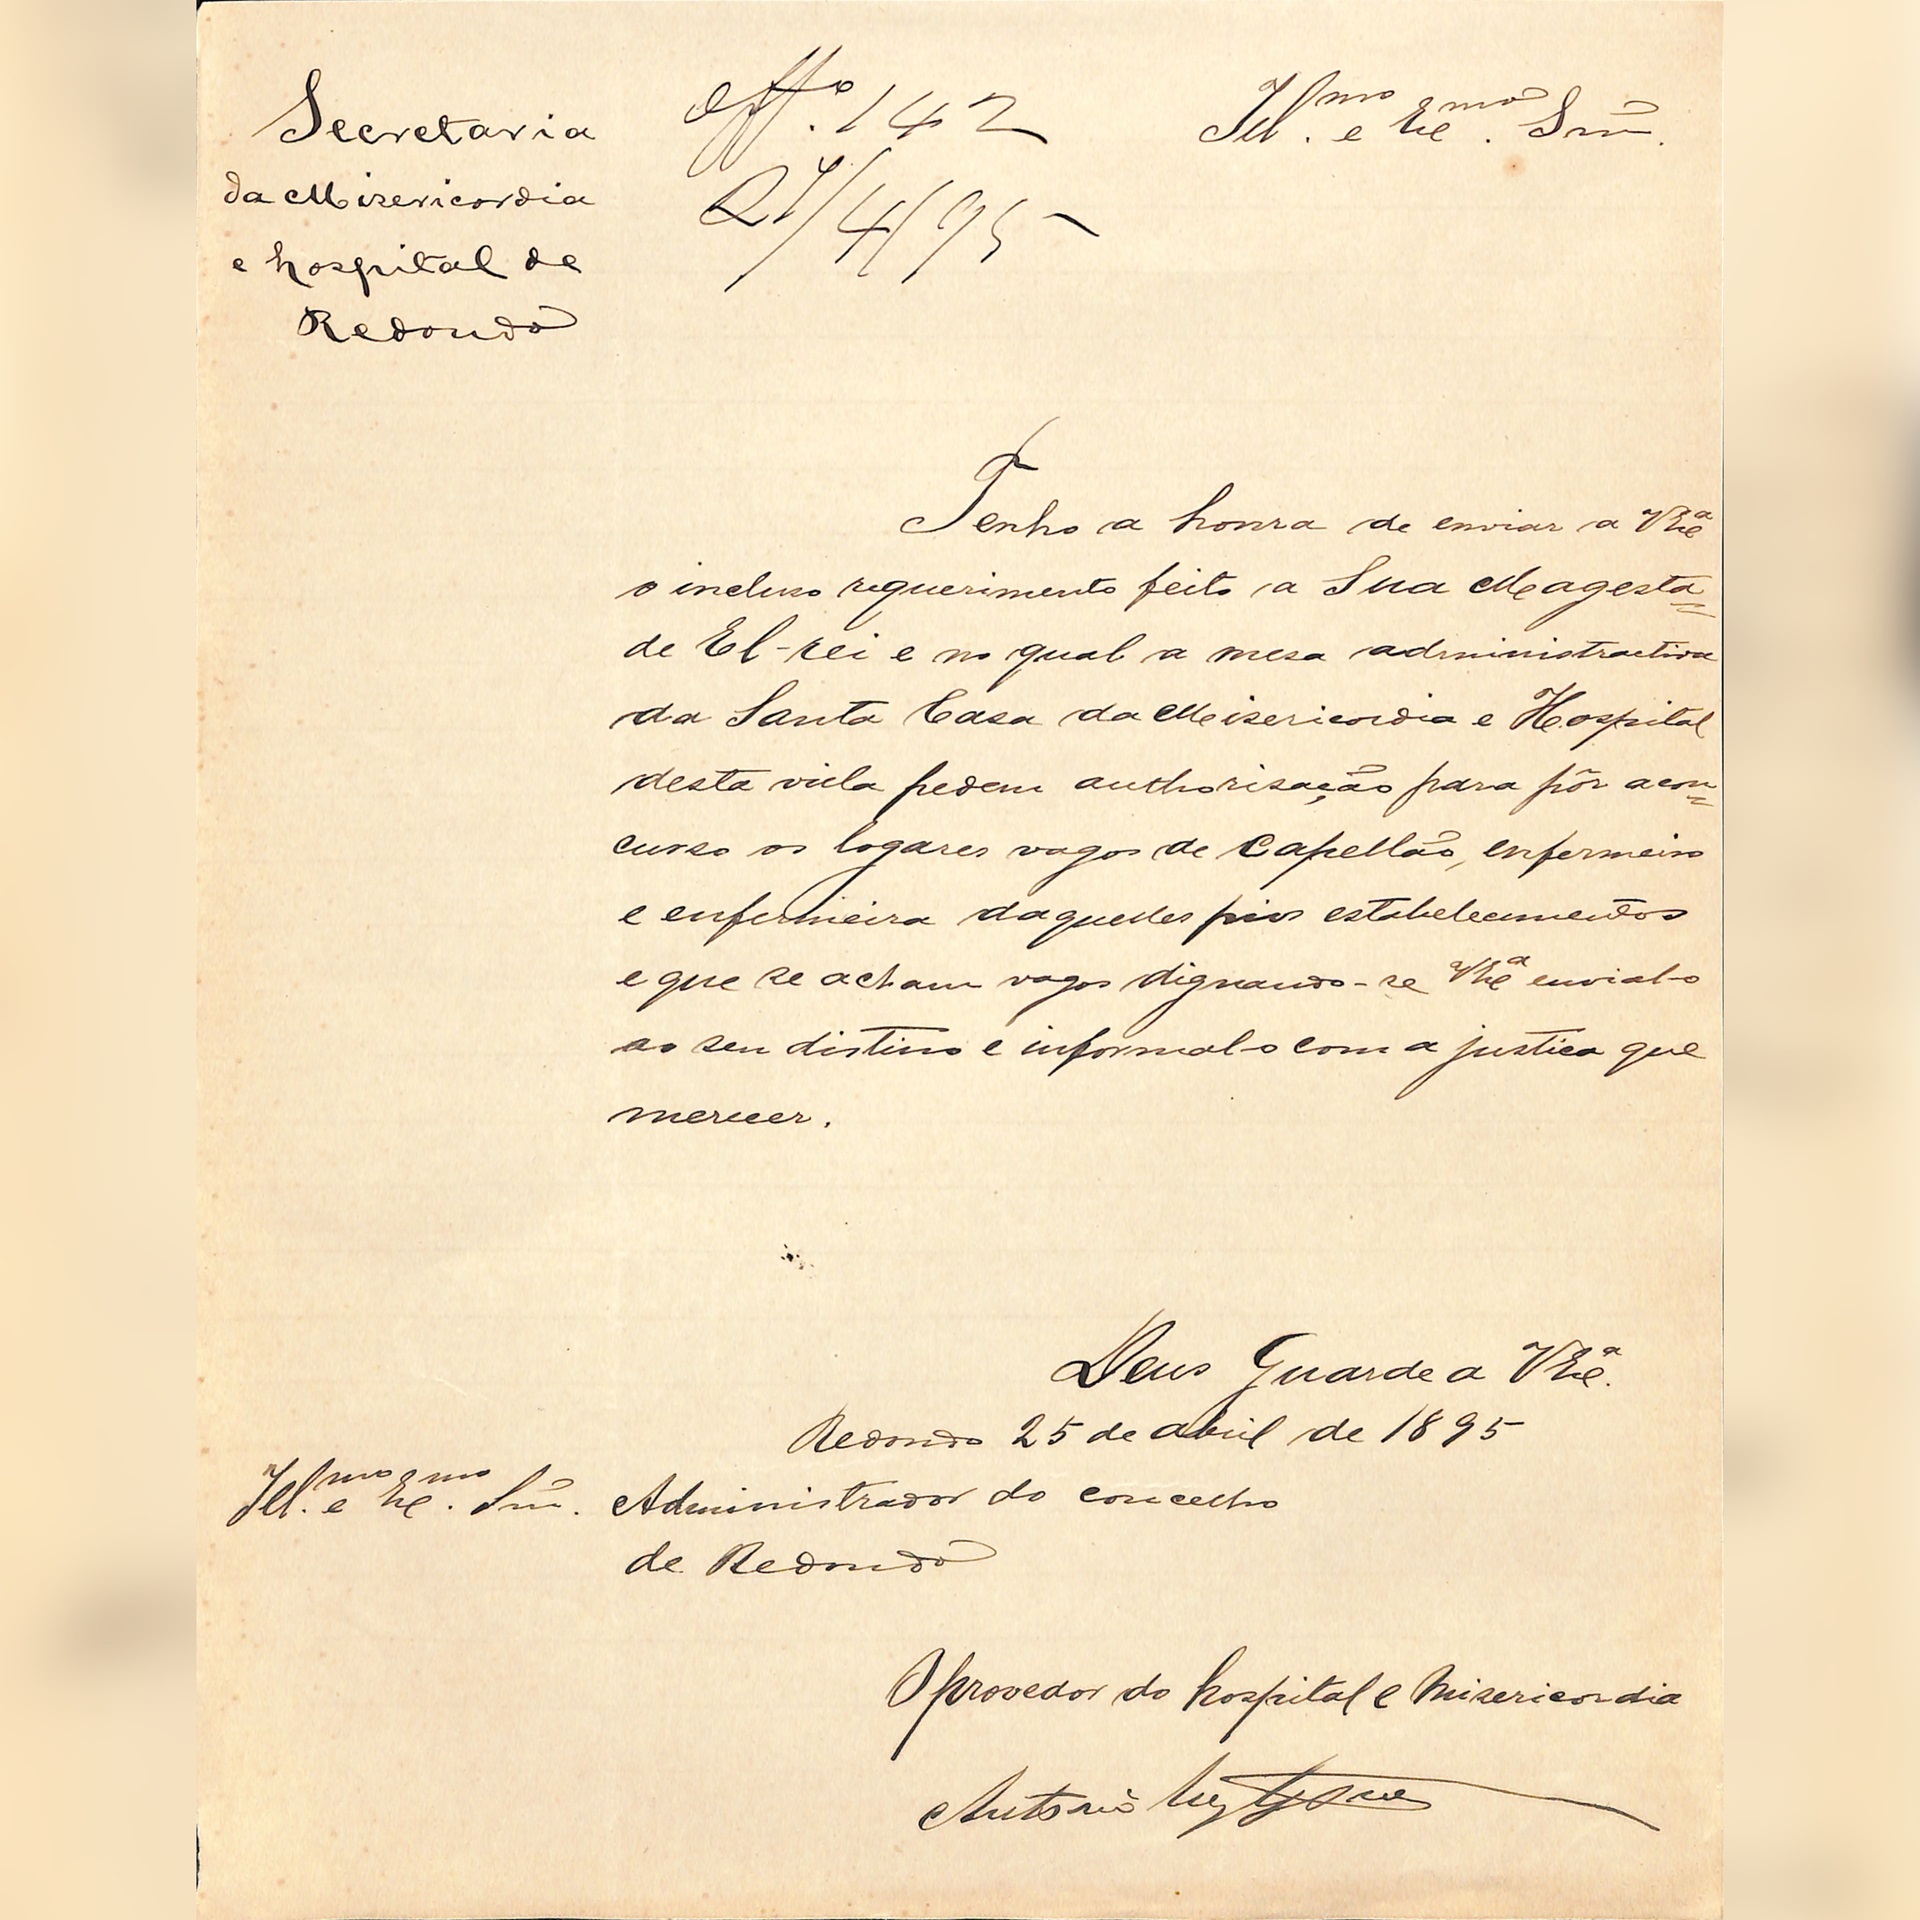 Secretaria
da Misericordia
e hospital de
Redondo
Off.º 142
27/4/95
Ill.mo e Exc.mo Snr.
Tenho a honra de enviar a VExcª
o incluso requerimento feito a Sua Magesta=
de El-rei e no qual a mesa administractiva
da Santa Casa da Meisericordia e Hospital
desta villa pedem authorisação para pôr a con=
curso os logares vagos de Capellão, enfermeiro
e enfermeira daquelles pios estabelecimentos
e que se acham vagos dignando-se VExcª envial-o
ao seu distino e informal-o com a justica que
merecer.
Deus Guarde a VExcª.
Redondo 25 de abril de 1895
Ill.mo e Exc.mo Snr. Administrador do concelho
de Redondo
O provedor do hospital e Misericordia
Antonio